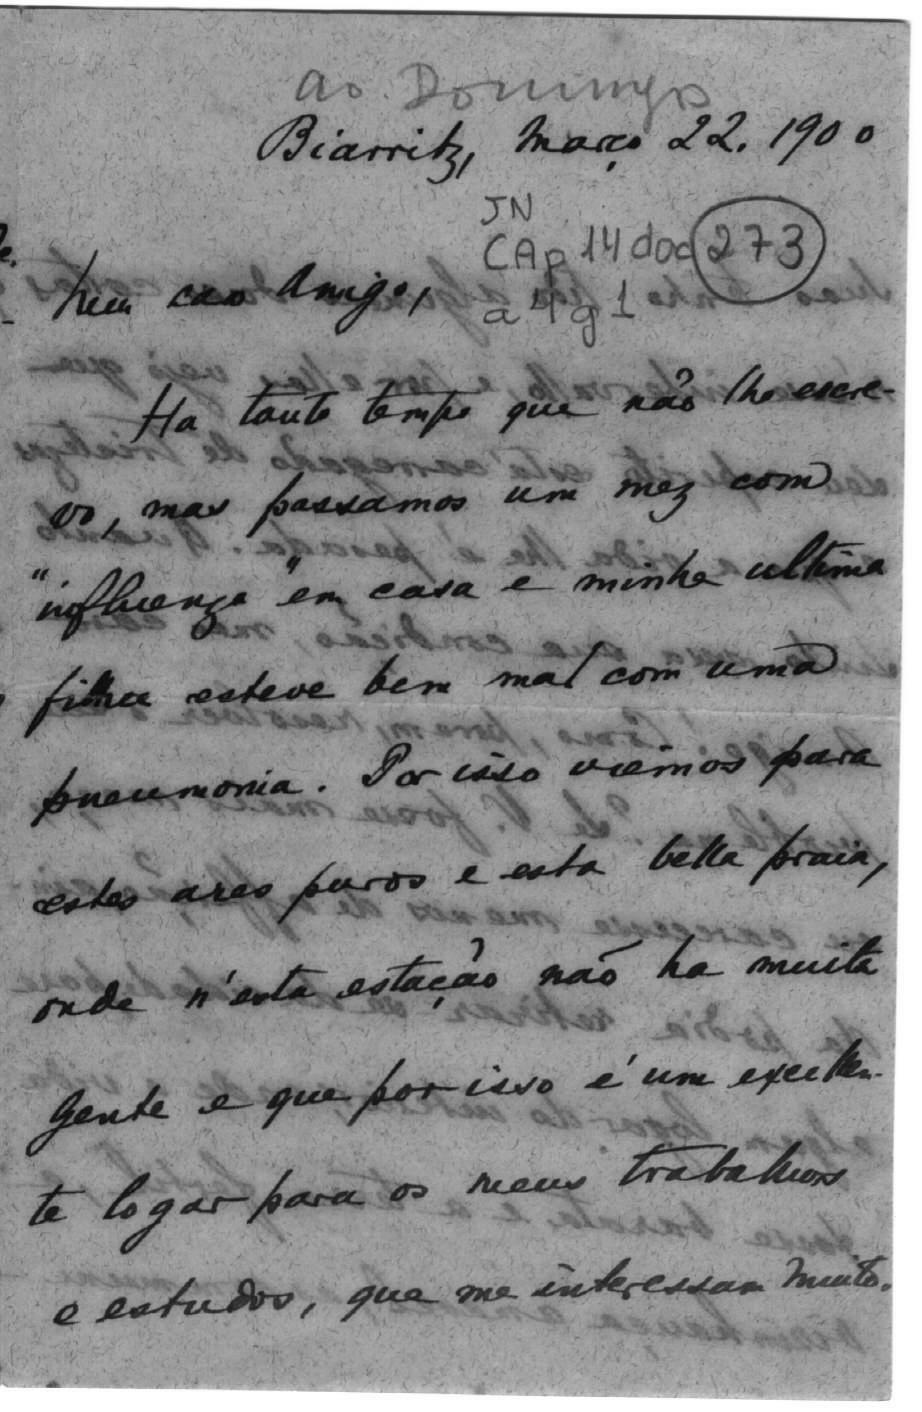 ao Domingos
Biarritz, Março 22. 1900
JN
CAp 14 doc 273
a 4 g 1
Meu caro Amigo,
Ha tanto tempo que não lhe escre-
vo, mas passamos um mez com
"influenza" em casa e minha ultima
filha esteve bem mal com uma
pneumonia. Por isso viemos para
estes ares puros e esta bella praia,
onde n'esta estação não ha muita
gente e que por isso é um excellen-
te logar para os meus trabalhos
e estudos, que me interessam muito.